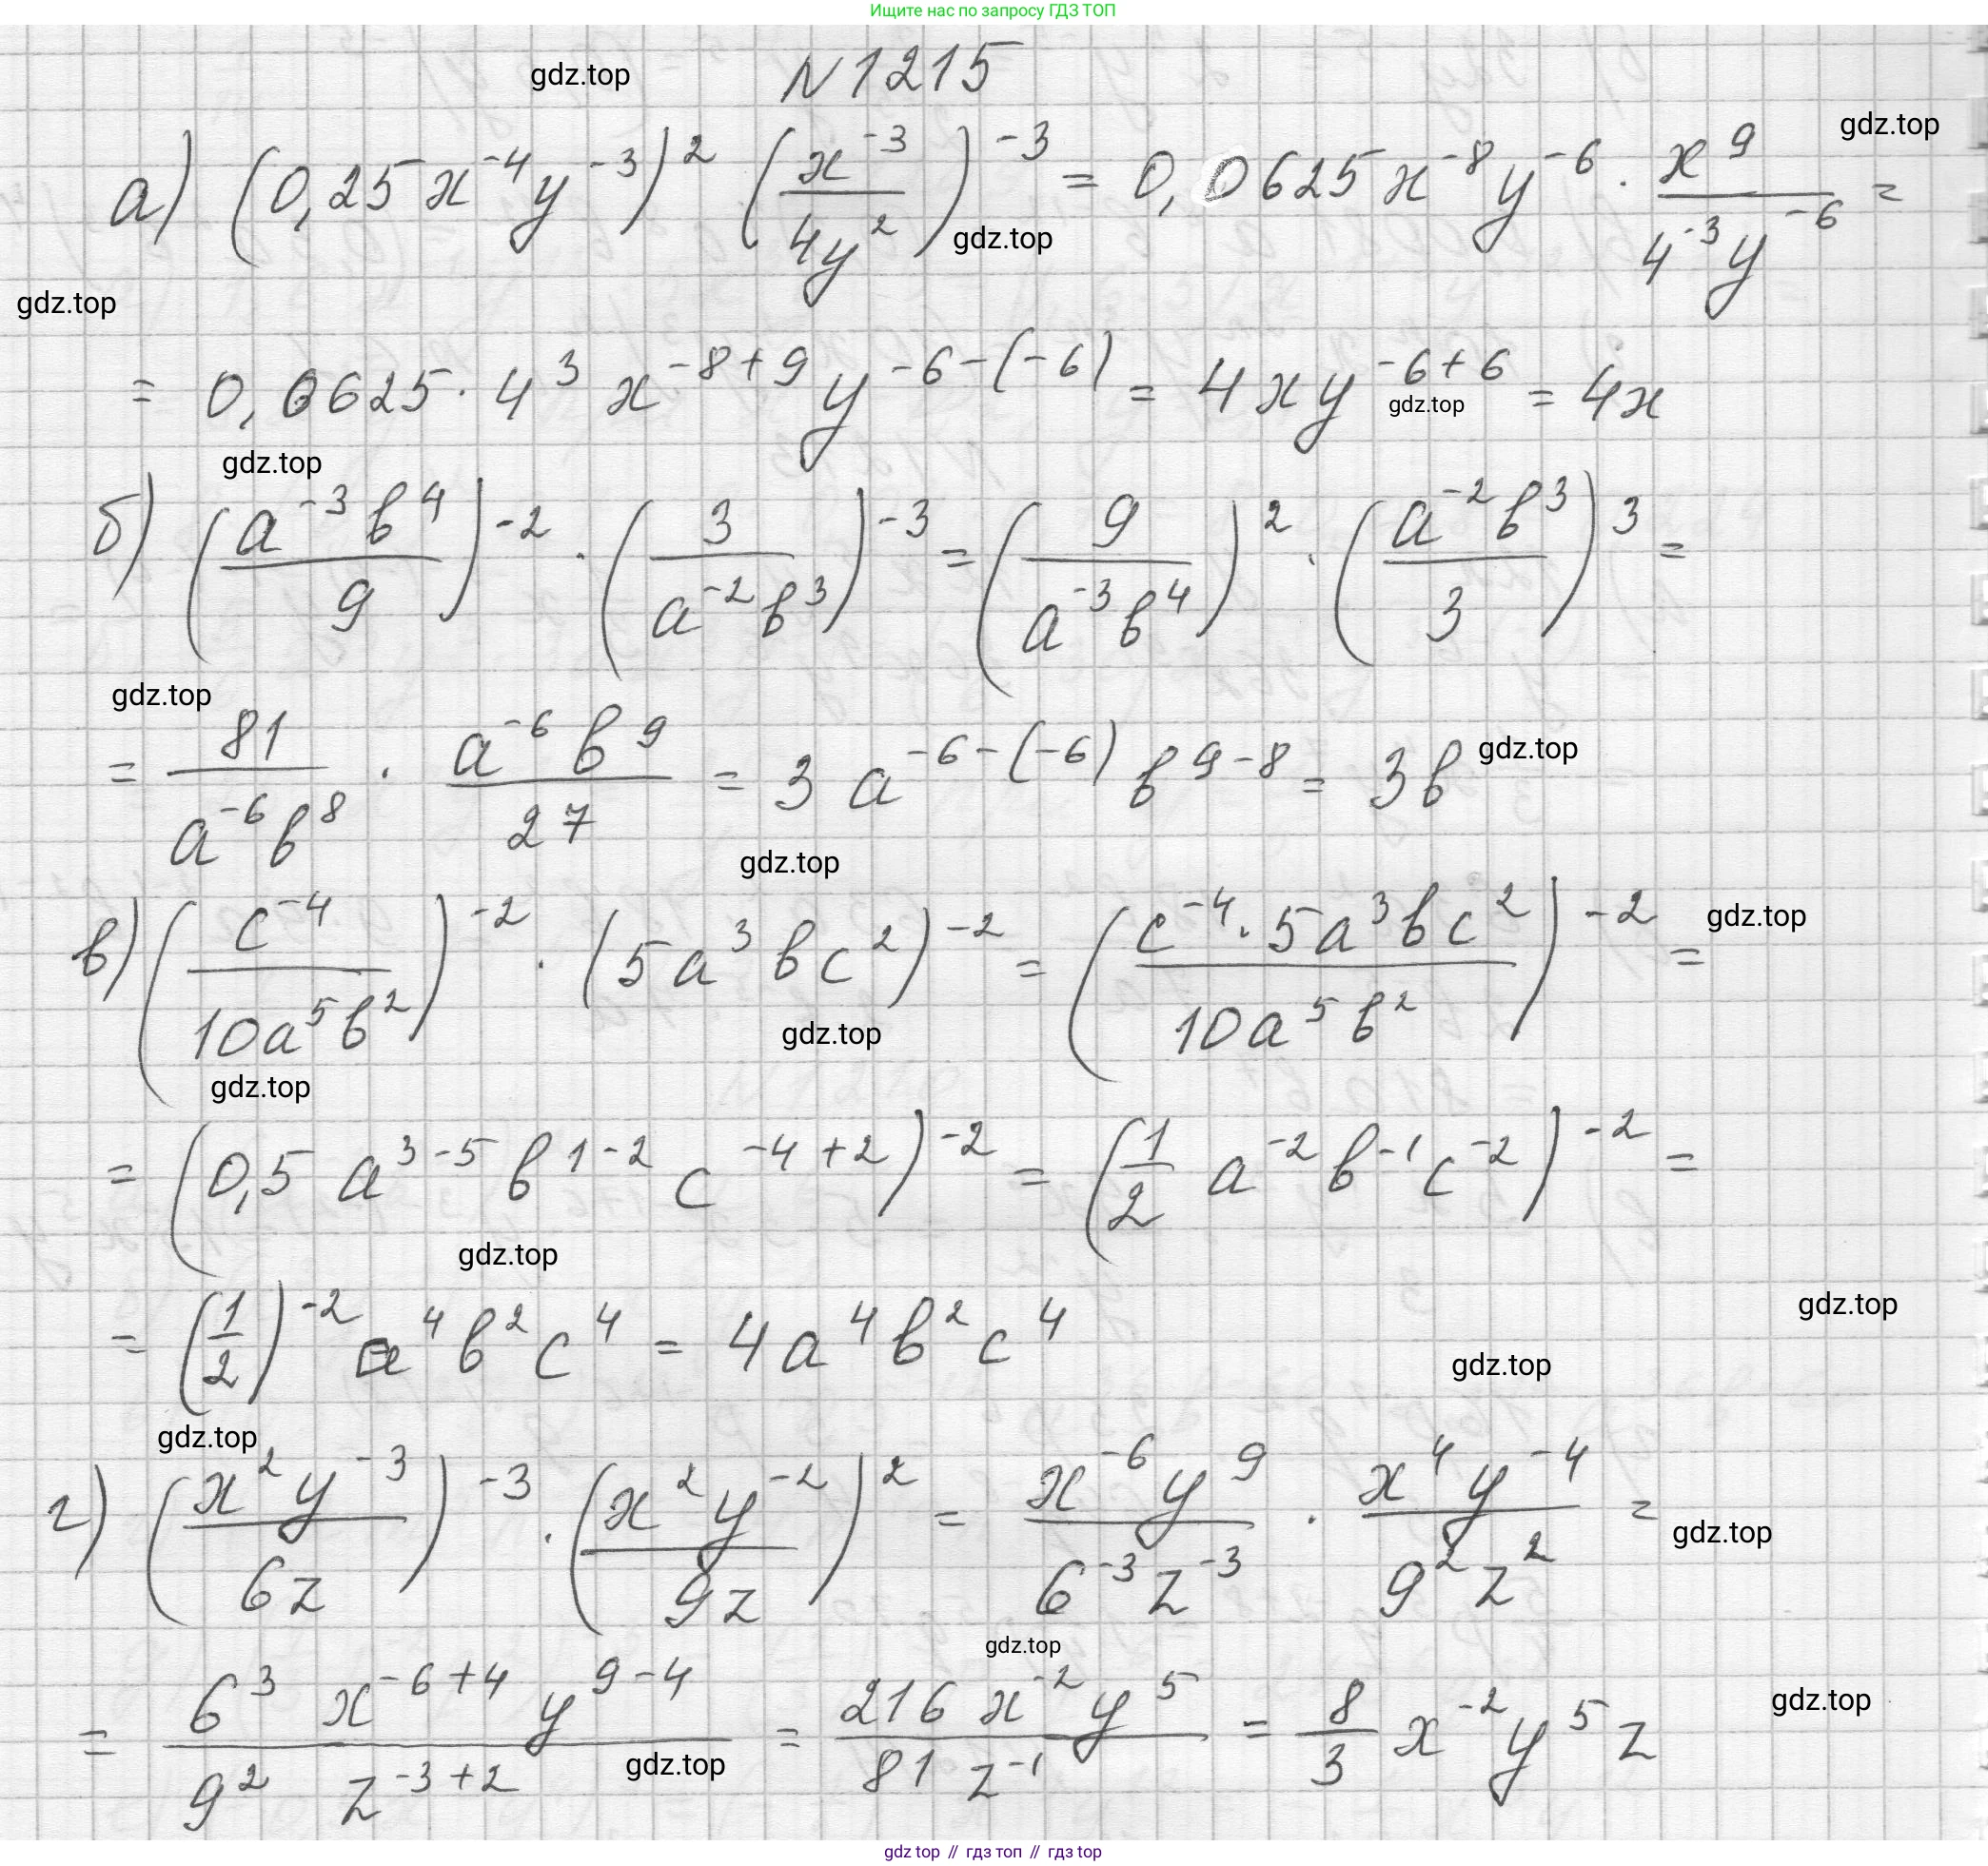 Ищите нас по запросу ГДЗ ТОП
gdz.top N1215
а) (0,25x⁻⁴y⁻³)² (x⁻³/4y²)⁻³ = 0,0625x⁻⁸y⁻⁶ · x⁹/4⁻³y⁻⁶ =
gdz.top
gdz.top
gdz.top
= 0,0625 · 4³ x⁻⁸⁺⁹ y⁻⁶⁻⁽⁻⁶⁾ = 4xy⁻⁶⁺⁶ = 4x
gdz.top
gdz.top
б) (a⁻³b⁴/9)⁻² · (3/a⁻²b³)⁻³ = (9/a⁻³b⁴)² · (a⁻²b³/3)³ =
gdz.top
= 81/a⁻⁶b⁸ · a⁻⁶b⁹/27 = 3a⁻⁶⁻⁽⁻⁶⁾ b⁹⁻⁸ = 3b
gdz.top
gdz.top
в) (c⁻⁴/10a⁵b²)⁻² · (5a³bc²)⁻² = (c⁻⁴ · 5a³bc²/10a⁵b²)⁻² =
gdz.top
gdz.top
gdz.top
= (0,5 a³⁻⁵ b¹⁻² c⁻⁴⁺²)⁻² = (1/2 a⁻²b⁻¹c⁻²)⁻² =
gdz.top
gdz.top
= (1/2)⁻² a⁴b²c⁴ = 4a⁴b²c⁴
gdz.top
gdz.top
г) (x²y⁻³/6z)⁻³ · (x²y⁻²/9z)² = x⁻⁶y⁹/6⁻³z⁻³ · x⁴y⁻⁴/9²z² =
gdz.top
gdz.top
= 6³ x⁻⁶⁺⁴ y⁹⁻⁴/9² z⁻³⁺² = 216x⁻²y⁵/81z⁻¹ = 8/3 x⁻²y⁵z
gdz.top
gdz.top
gdz top // гдз топ // гдз top